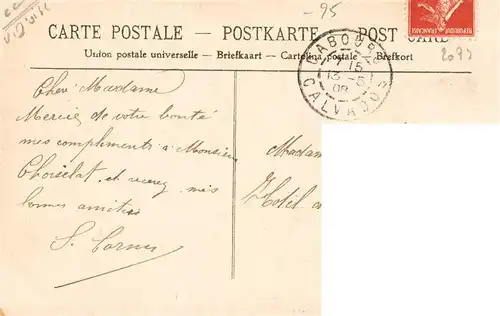 -95
CARTE POSTALE — POSTKARTE — POST CARD
Union postale universelle — Briefkaart — Cartolina postale — Brefkort
CABOURG
7 15
13 -5
08
CALVADOS
2093
Cher Madame
Mercie de votre bonté
mes compliments a Monsieur
Choiselat et recevez mes
bonnes amitiés
Madam
Hotel